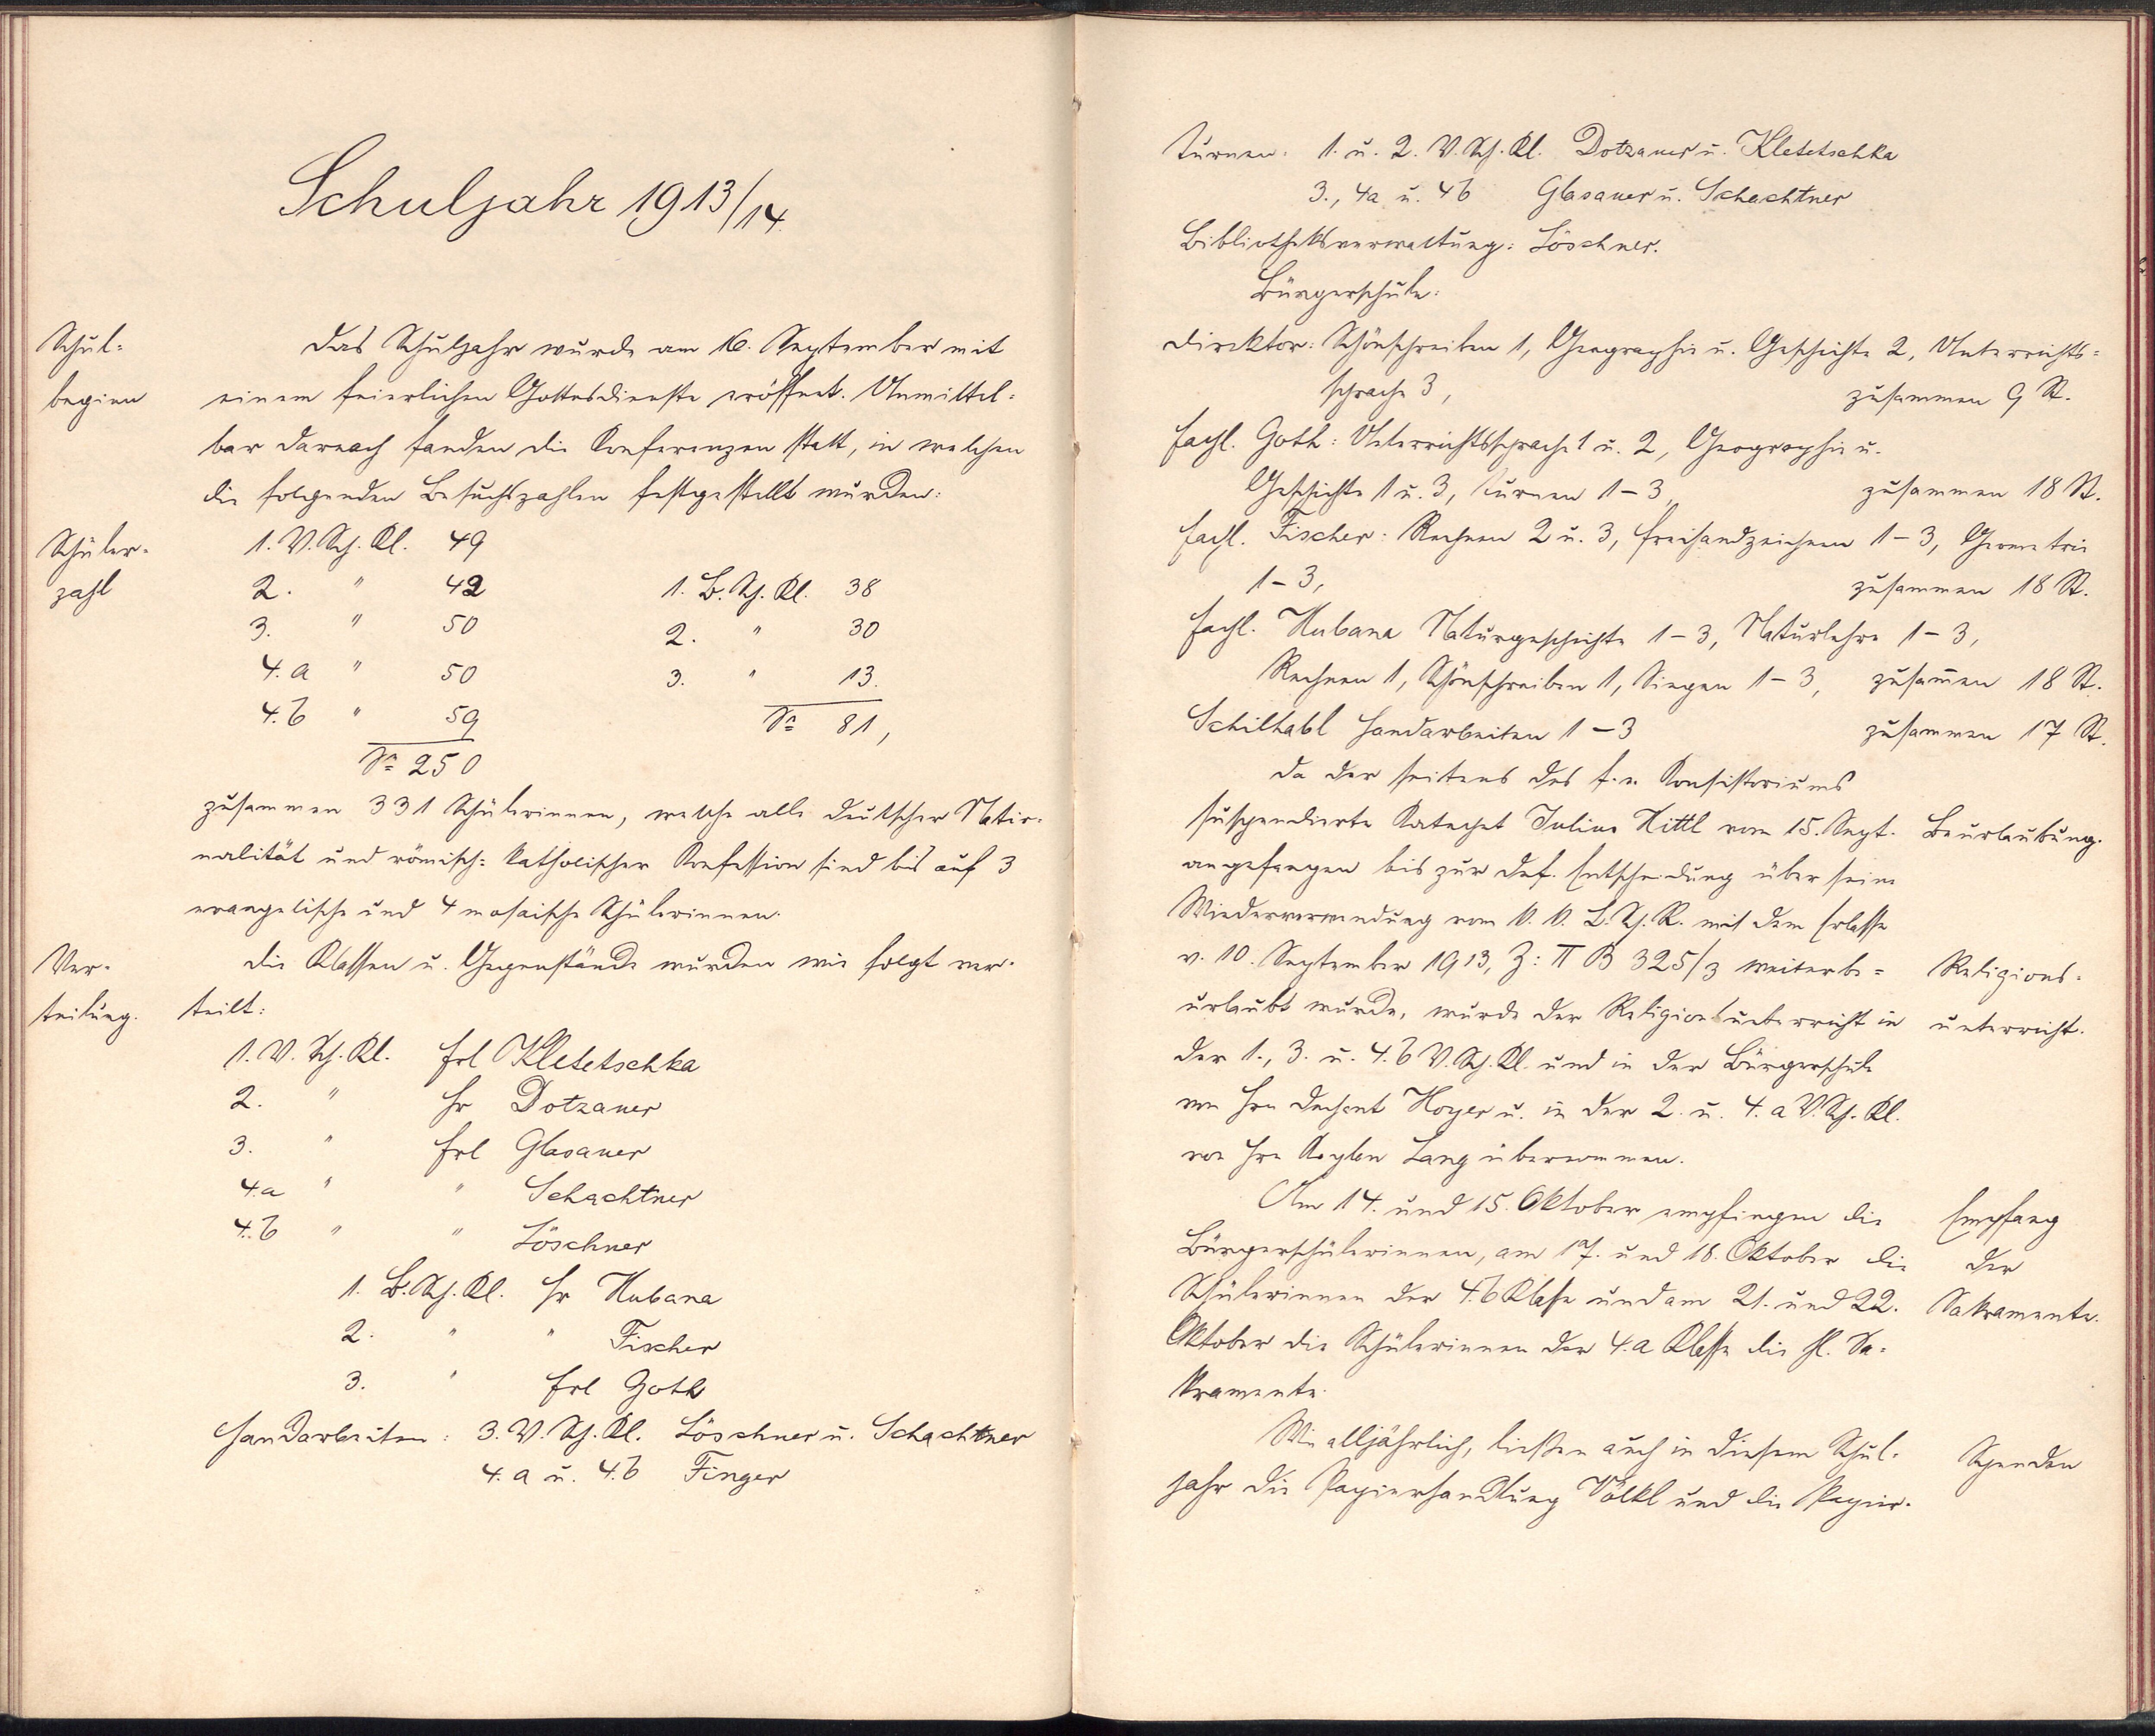 Schuljahr 1913/14.
Schul=
beginn
Das Schuljahr wurde am 16. September mit
einem feierlichen Gottesdienste eröffnet. Unmittel=
bar darnach fanden die Konferenzen statt, in welchen
die folgenden Besuchszahlen festgestellt wurden:
Schüler-
zahl
1. V. Sch. Kl. 49
2. " 42 1. B. Sch. Kl. 38
3. " 50 2. " 30
4. a " 50 3. " 13.
4. b " 59 Sa 81,
Sa 250
zusammen 331 Schülerinnen, welche alle deutscher Natio-
nalität und römisch=katholischer Konfession sind bis auf 3
evangelische und 4 mosaische Schülerinnen.
Ver-
teilung.
Die Klassen u. Gegenstände wurden wie folgt ver-
teilt:
1. V. Sch. Kl. Frl Kletetschka
2. " Hr Dotzauer
3. " Frl Glasauer
4. a " " Schachtner
4. b " " Löschner
1. B. Sch. Kl. Hr Kubana
2. " " Fischer
3. " Frl Goth
Handarbeiten: 3. V. Sch. Kl. Löschner u. Schachtner
4. a u. 4. b Finger
Turnen: 1. u. 2. V. Sch. Kl. Dotzauer u. Kletetschka
3., 4a u. 4b Glasauer u. Schachtner
Bibliotheksverwaltung: Löschner.
Bürgerschule:
Direktor: Schönschreiben 1, Geographie u. Geschichte 2, Unterrichts=
sprache 3, zusammen 9 St.
Fachl. Goth: Unterrichtssprache 1 u. 2, Geographie u.
Geschichte 1 u. 3, Turnen 1–3, zusammen 18 St.
Fachl. Fischer: Rechnen 2 u. 3, Freihandzeichnen 1–3, Geometrie
1–3, zusammen 18 St.
Fachl. Kubana Naturgeschichte 1–3, Naturlehre 1–3,
Rechnen 1, Schönschreiben 1, Singen 1–3, zusam̄en 18 St.
Schilhabl Handarbeiten 1–3 zusammen 17 St.
Da der seitens des f. e. Konsistoriums
suspendierte Katechet Julius Hittl vom 15. Sept. Beurlaubung.
angefangen bis zur def. Entscheidung über seine
Wiederverwendung vom k. k. L. Sch. R. mit dem Erlasse
v. 10. September 1913, Z: II B 325/3 weiterbe= Religions-
urlaubt wurde, wurde der Religionsunterricht in unterricht.
der 1., 3. u. 4. b V. Sch. Kl. und in der Bürgerschule
von Hrn Dechant Hoyer u. in der 2. u. 4. a V. Sch. Kl.
von Hrn Kaplan Lang übernommen.
Am 14. und 15. Oktober empfingen die Empfang
Bürgerschülerinnen, am 17. und 18. Oktober die der
Schülerinnen der 4. b Klasse und am 21. und 22. Sakramente.
Oktober die Schülerinnen der 4. a Klasse die hl. Sa-
kramente.
Wie alljährlich, ließen auch in diesem Schul- Spenden
jahr die Papierhandlung Völkl und die Papier-